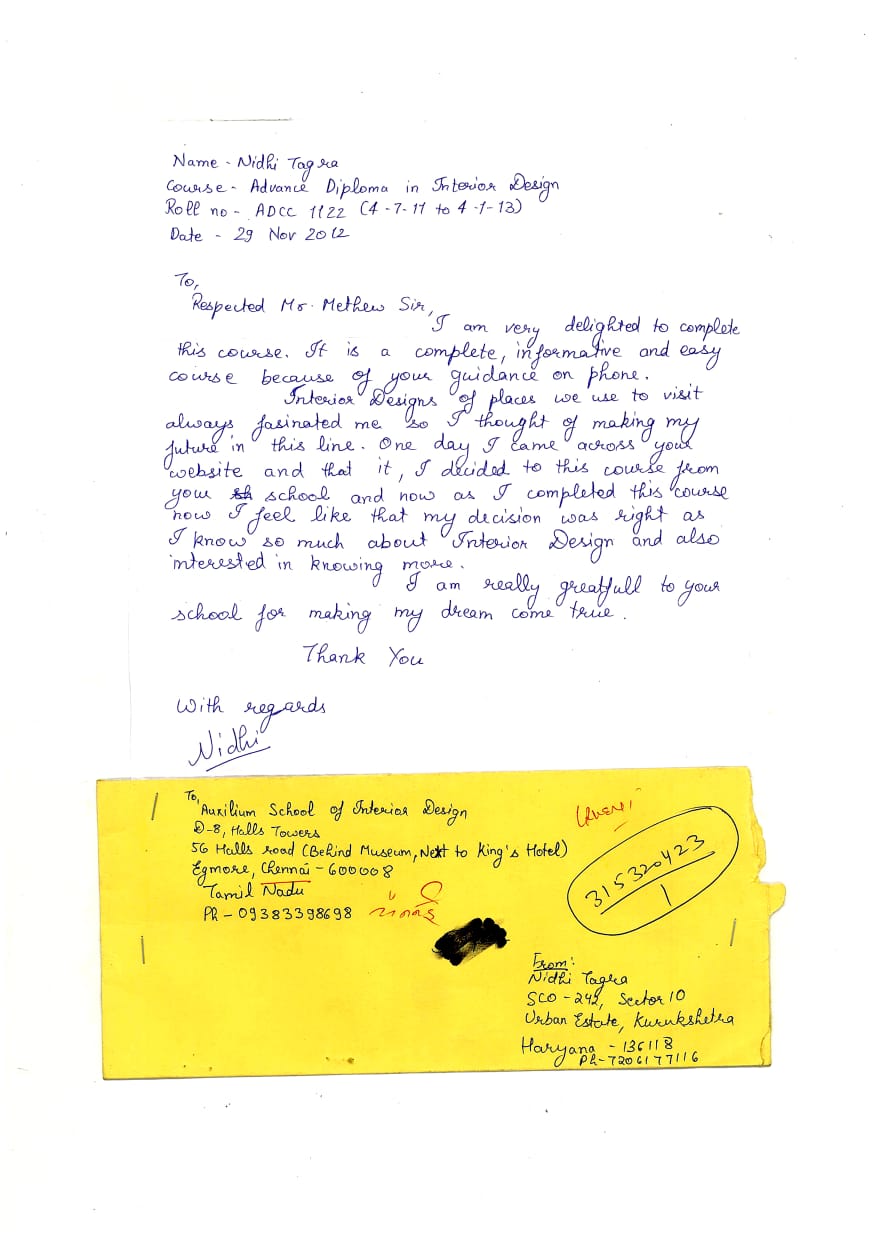 Name - Nidhi Tagra
Course - Advance Diploma in Interior Design
Roll no - ADCC 1122 (4-7-11 to 4-1-13)
Date - 29 Nov 2012
To,
Respected Mr. Methew Sir,
I am very delighted to complete
this course. It is a complete, informative and easy
course because of your guidance on phone.
Interior Designs of places we use to visit
always fasinated me so I thought of making my
future in this line. One day I came across your
website and that it, I decided to this course from
your school and now as I completed this course
now I feel like that my decision was right as
I know so much about Interior Design and also
interested in knowing more.
I am really greatfull to your
school for making my dream come true.
Thank You
With regards
Nidhi
To,
Auxilium School of Interior Design
D-8, Halls Towers
56 Halls road (Behind Museum, Next to King's Hotel)
Egmore, Chennai - 600008
Tamil Nadu
PH - 09383398698
315320423
1
From:
Nidhi Tagra
SCO - 242, Sector 10
Urban Estate, Kurukshetra
Haryana - 136118
Ph - 7206177116